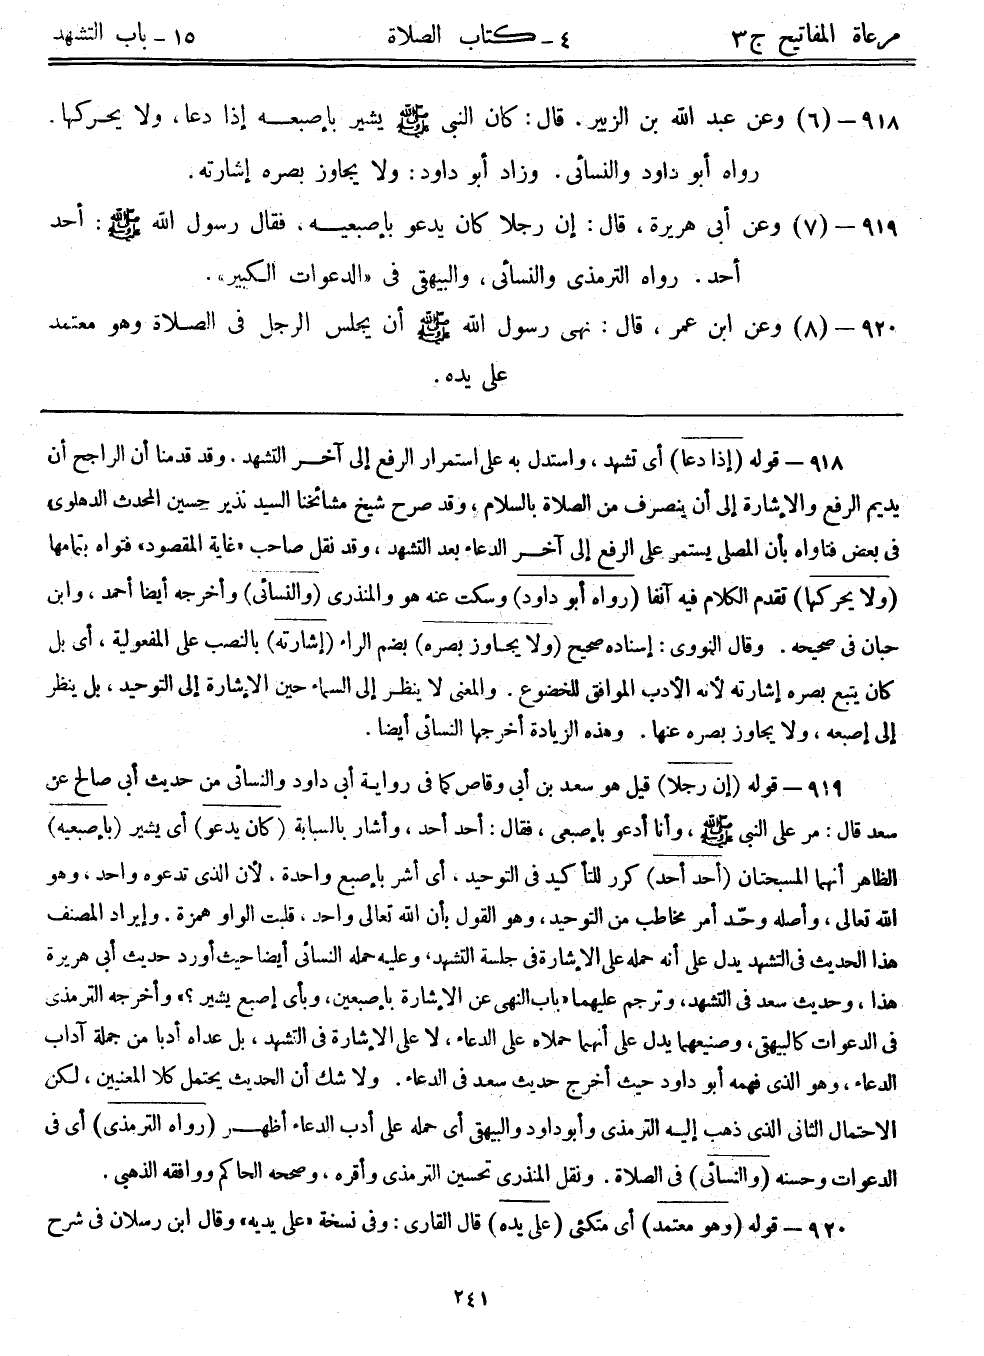 مرعاة المفاتيح ج ٣
٤ - كتاب الصلاة
١٥ - باب التشهد
٩١٨ - (٦) وعن عبد الله بن الزبير . قال: كان النبي ﷺ يشير بإصبعه إذا دعا، ولا يحركها.
رواه أبو داود والنسائى. وزاد أبو داود: ولا يجاوز بصره إشارته.
٩١٩ - (٧) وعن أبي هريرة، قال: إن رجلا كان يدعو بإصبعيه، فقال رسول الله ﷺ: أحد
أحد. رواه الترمذى والنسائى، والبيهقى فى «الدعوات الكبير».
٩٢٠ - (٨) وعن ابن عمر، قال: نهى رسول الله ﷺ أن يجلس الرجل فى الصلاة وهو معتمد
على يده.
٩١٨ - قوله (إذا دعا) أى تشهد، واستدل به على استمرار الرفع إلى آخر التشهد. وقد قدمنا أن الراجح أن
يديم الرفع والإشارة إلى أن ينصرف من الصلاة بالسلام، وقد صرح شيخ مشائخنا السيد نذير حسين المحدث الدهلوى
فى بعض فتاواه بأن المصلى يستمر على الرفع إلى آخر الدعاء بعد التشهد، وقد نقل صاحب «غاية المقصود» فتواه بتمامها
(ولا يحركها) تقدم الكلام فيه آنفا (رواه أبو داود) وسكت عنه هو والمنذرى (والنسائى) وأخرجه أيضا أحمد، وابن
حبان فى صحيحه. وقال النووى: إسناده صحيح (ولا يجاوز بصره) بضم الراء (إشارته) بالنصب على المفعولية، أى بل
كان يتبع بصره إشارته لأنه الأدب الموافق للخضوع. والمعنى لا ينظر إلى السماء حين الإشارة إلى التوحيد، بل ينظر
إلى إصبعه، ولا يجاوز بصره عنها. وهذه الزيادة أخرجها النسائى أيضا.
٩١٩ - قوله (إن رجلا) قيل هو سعد بن أبي وقاص كما فى رواية أبي داود والنسائى من حديث أبي صالح عن
سعد قال: مر على النبي ﷺ، وأنا أدعو بإصبعى، فقال: أحد أحد، وأشار بالسبابة (كان يدعو) أى يشير (بإصبعيه)
الظاهر أنهما المسبحتان (أحد أحد) كرر للتأكيد فى التوحيد، أى أشر بإصبع واحدة. لأن الذى تدعوه واحد، وهو
الله تعالى، وأصله وحّد أمر مخاطب من التوحيد، وهو القول بأن الله تعالى واحد، قلبت الواو همزة. وإيراد المصنف
هذا الحديث فى التشهد يدل على أنه حمله على الإشارة فى جلسة التشهد، وعليه حمله النسائى أيضا حيث أورد حديث أبي هريرة
هذا، وحديث سعد فى التشهد، وترجم عليهما «باب النهى عن الإشارة بإصبعين، وبأى إصبع يشير؟» وأخرجه الترمذى
فى الدعوات كالبيهقى، وصنيعهما يدل على أنهما حملاه على الدعاء، لا على الإشارة فى التشهد، بل عداه أدبا من جملة آداب
الدعاء، وهو الذى فهمه أبو داود حيث أخرج حديث سعد فى الدعاء. ولا شك أن الحديث يحتمل كلا المعنيين، لكن
الاحتمال الثانى الذى ذهب إليه الترمذى وأبو داود والبيهقى أى حمله على أدب الدعاء أظهر (رواه الترمذى) أى فى
الدعوات وحسنه (والنسائى) فى الصلاة. ونقل المنذرى تحسين الترمذى وأقره، وصححه الحاكم ووافقه الذهبي.
٩٢٠ - قوله (وهو معتمد) أى متكئ (على يده) قال القارى: وفى نسخة «على يديه» وقال ابن رسلان فى شرح
٢٤١